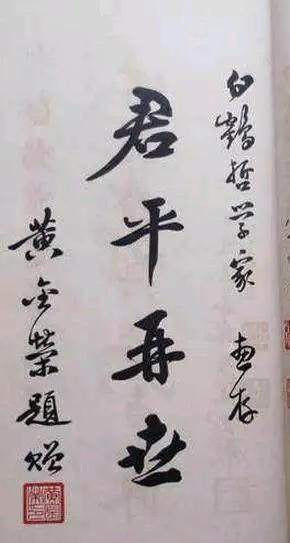 白鶴哲学家 惠存
君平再世
黃金榮題贈